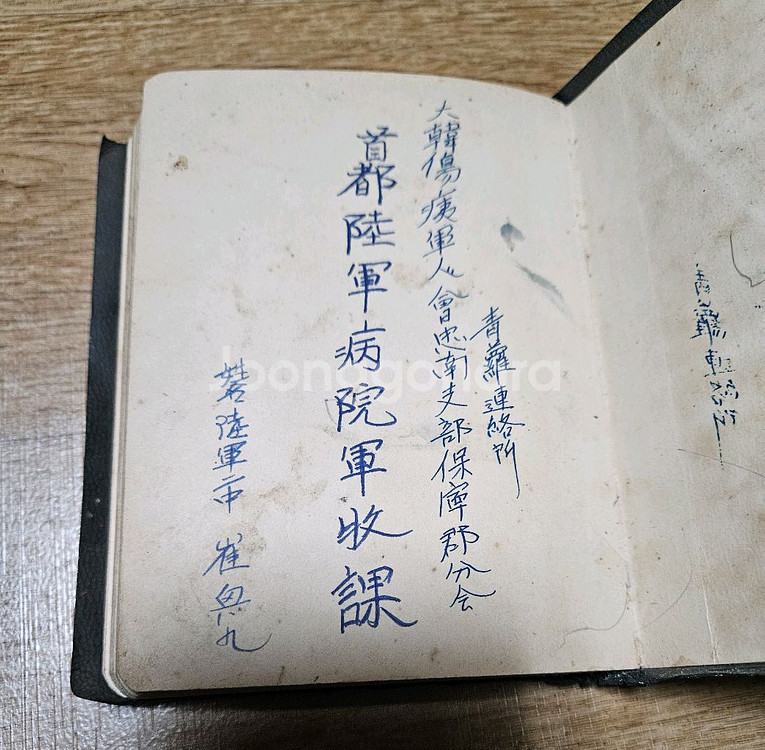 青蘿連絡所
青蘿連絡所
大韓傷痍軍人會忠南支部保寧郡分会
首都陸軍病院軍收課
姓名 陸軍二中 崔興九
Joonggonara